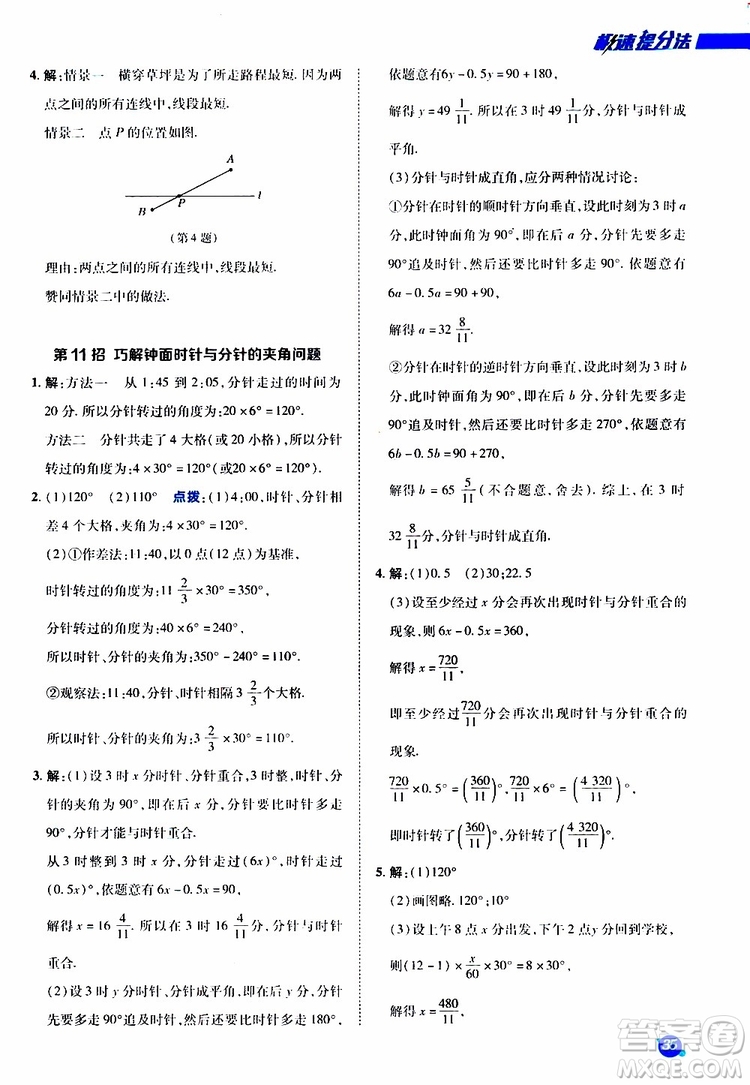 极速提分法
4. 解:情景一 横穿草坪是为了所走路程最短. 因为两
点之间的所有连线中,线段最短.
情景二 点 P 的位置如图.
A
P
l
B
(第 4 题)
理由:两点之间的所有连线中,线段最短.
赞同情景二中的做法.
第 11 招 巧解钟面时针与分针的夹角问题
1. 解:方法一 从 1:45 到 2:05,分针走过的时间为
20 分. 所以分针转过的角度为:20×6°=120°.
方法二 分针共走了 4 大格(或 20 小格),所以分针
转过的角度为:4×30°=120°(或 20×6°=120°).
2. (1)120° (2)110° 点拨:(1)4:00,时针、分针相
差 4 个大格,所以时针、分针的夹角是:4×30°=120°.
(2)①作差法:11:40,以 0 点(12 点)为基准,
时针转过的角度为:11 2/3 ×30°=350°,
分针转过的角度为:40×6°=240°,
所以时针、分针的夹角为:350°-240°=110°.
②观察法:11:40,时针、分针相隔 3 2/3 个大格.
所以时针、分针的夹角为:3 2/3 ×30°=110°.
3. 解:(1)设 3 时 x 分时针、分针重合,3 时整时针、分
针的夹角为 90°,即在整点的基础上分针要多走
90°,分针才能与时针重合.
从 3 时整到 3 时 x 分,分针走过(6x)°,时针走过
(0.5x)°,依题意有 6x-0.5x=90,
解得 x=16 4/11,所以 3 时 16 4/11 分,分针与时针
重合.
(2)设 3 时 y 分时针、分针成平角,在 3 时整,时针、
分针的夹角为 90°,即在 3 时整的基础上,分针要
先要多走 90°追及时针,然后还要多走 180°,
依题意有6y-0.5y=90+180,
解得 y=49 1/11. 所以在 3 时 49 1/11 分,分针与时针成
平角.
(3)分针与时针成直角,应分两种情况讨论:
①分针在时针的顺时针方向垂直,设此时刻为 3 时 a
分,此时钟面角为 90°,即在 3 时后,分针先要多走
90°追及时针,然后还要多走 90°. 依题意有
6a-0.5a=90+90,
解得 a=32 8/11.
②分针在时针的逆时针方向垂直,设此时刻为 3 时 b
分,此时钟面角为 90°,即在 3 时后,分针先要多走
90°追及时针,然后还要多走 270°,依题意有
6b-0.5b=90+270,
解得 b=65 5/11(不合题意,舍去). 综上,在 3 时
32 8/11 分,分针与时针成直角.
4. 解:(1)0.5 (2)30;22.5
(3)设至少经过 x 分会再次出现时针与分针重合的
现象,则 6x-0.5x=360,
解得 x=720/11,
即至少经过720/11分会再次出现时针与分针重合的
现象.
720/11×0.5°=(360/11)°,720/11×6°=(4 320/11)°,
即时针转了(360/11)°,分针转了(4 320/11)°.
5. 解:(1)120°
(2)画图略. 120°;10°
(3)设上午 8 点 x 分出发,下午 2 点y分回到学校,
则(12-1)×x/60×30=8×30+x/60×30,
解得 x=480/11,
35
答案圈
MXEQ.COM